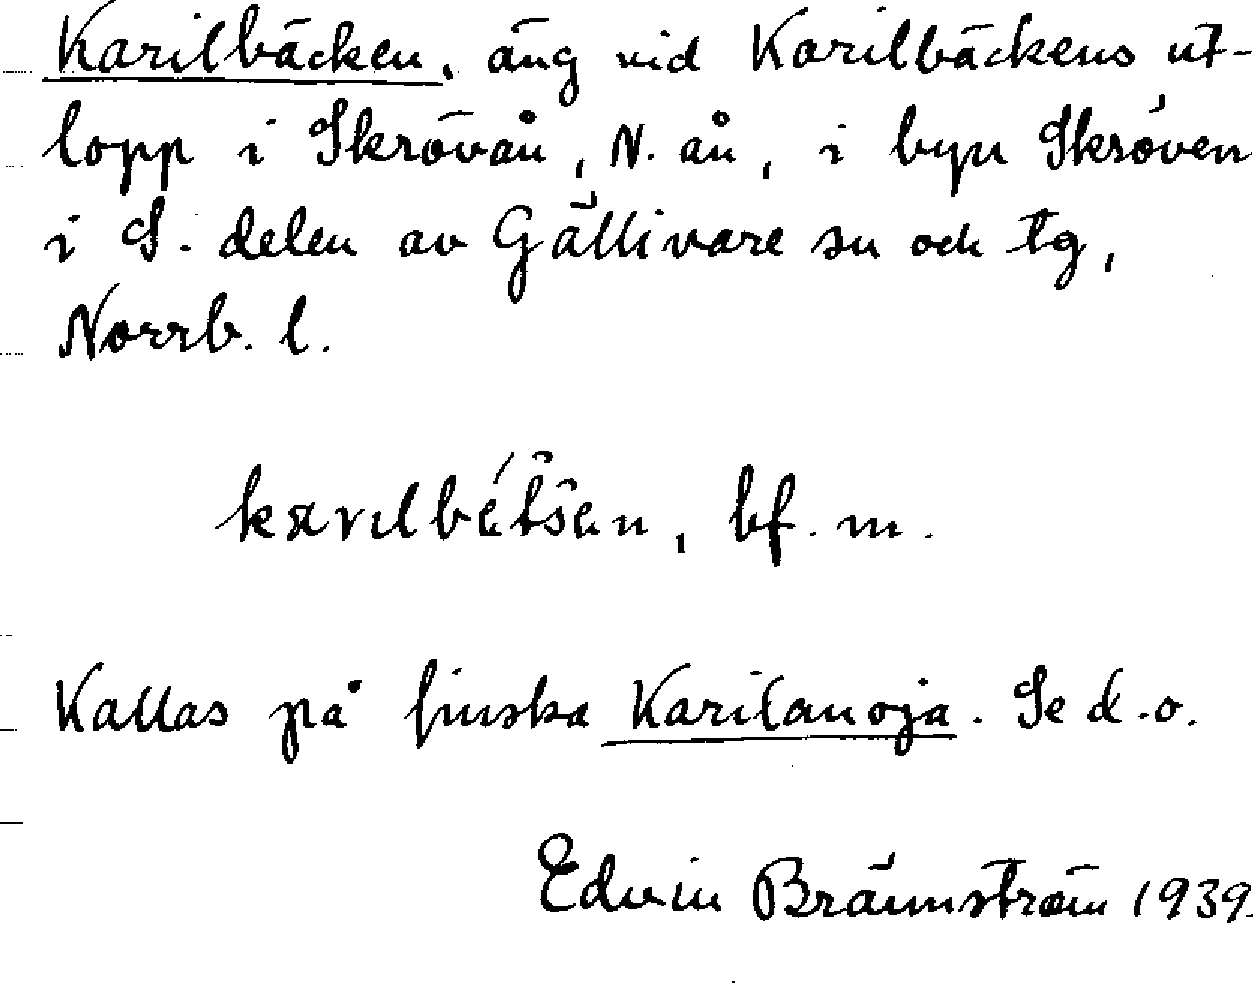 Karilbäcken, äng vid Karilbäckens ut-
lopp i Skrövån, N. ån, i byn Skröven
i S. delen av Gällivare sn och tg,
Norrb. l.
bf. m.
Kallas på finska Karilanoja. Se d.o.
Edvin Brännström 1939.